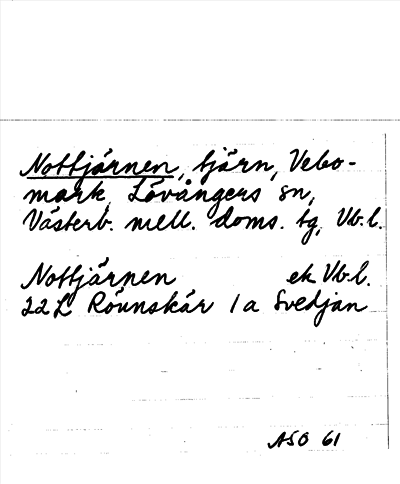 Nottjärnen, tjärn, Vebo-
mark, Lövångers sn,
Västerb. mell. doms. tg, Vb. l.
Nottjärnen ek Vb. l.
22L Rönnskär 1a Svedjan
ASO 61